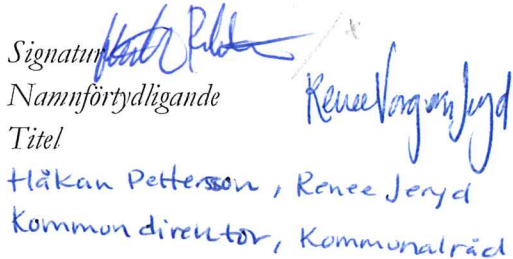 Signatur
Namnförtydligande
Titel
Håkan Pettersson, Renee Jeryd
Kommundirektor, Kommunalråd